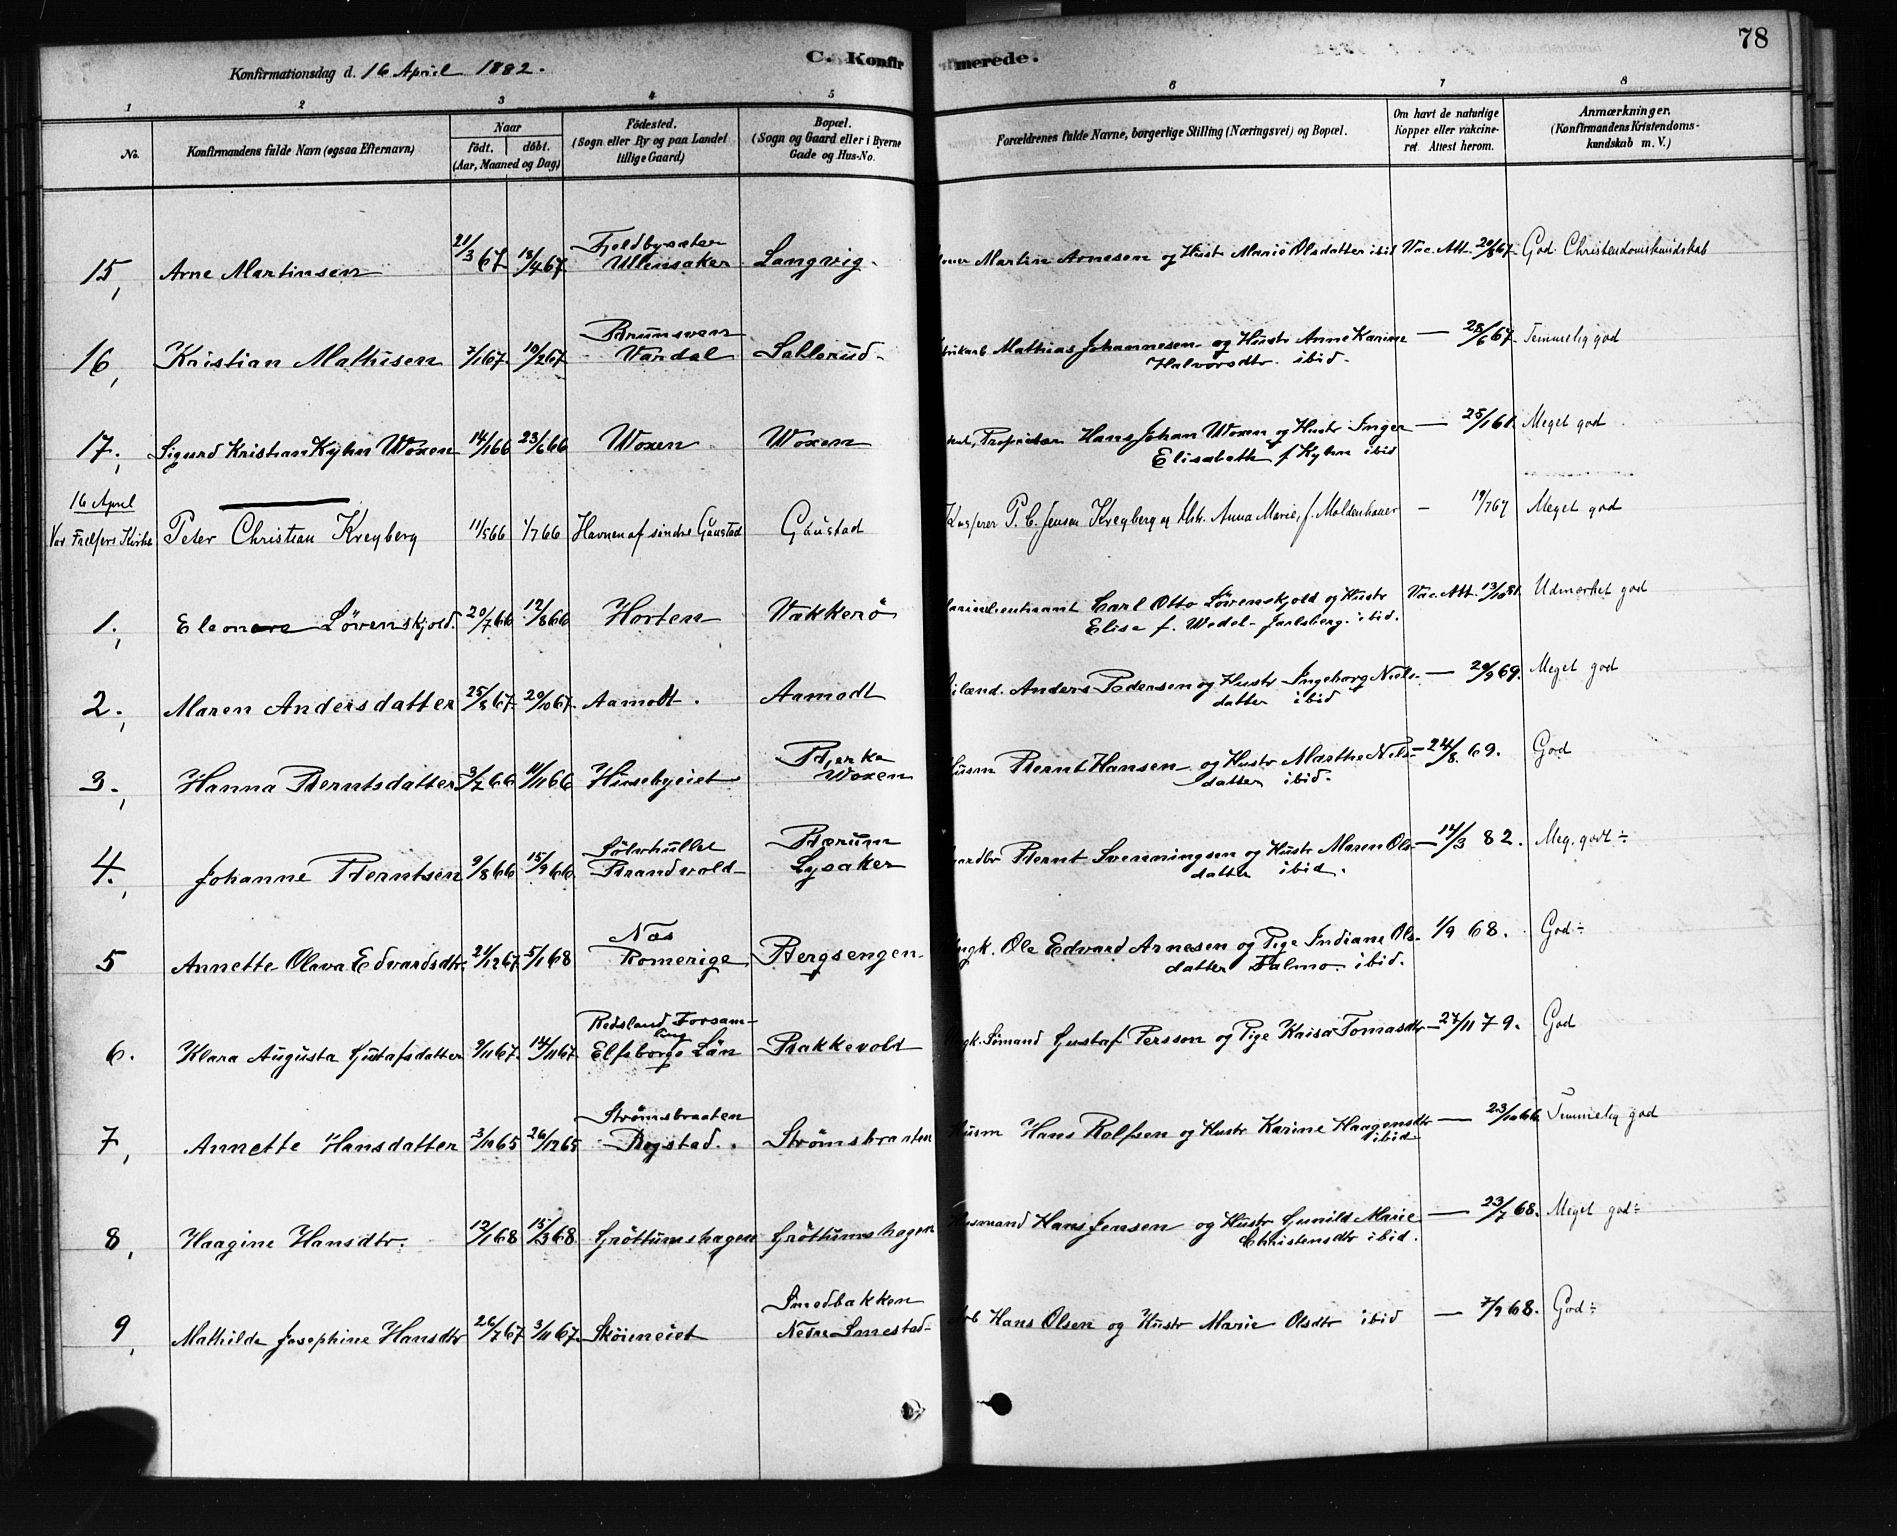 78
C. Konfirmerede.
Konfirmationsdag d. 16 April 1882.
1 2 3 4 5 6 7 8
No.
Konfirmandens fulde Navn (ogsaa Efternavn)
Naar
født. døbt.
(Aar, Maaned og Dag)
Fødested.
(Sogn eller By og paa Landet
tillige Gaard)
Bopæl.
(Sogn og Gaard eller i Byerne
Gade og Hus-No.
Forældrenes fulde Navne, borgerlige Stilling (Næringsvei) og Bopæl.
Om havt de naturlige
Kopper eller vakcine-
ret. Attest herom.
Anmærkninger.
(Konfirmandens Kristendoms-
kundskab m. V.)
15, Arne Martinsen 21/3 67 18/4 67 Fjeldbysæter Ullensaker Langvig. Martin Arnesen og Hust Marie Olsdatter ibid Vac. Att. God Christendomskundskab
16, Kristian Mathisen 7/1 67 10/2 67 Brunsven Vardal Sollerud. Mathias Johannesen og Hustr Anne Karine
Halvorsdtr ibid. — 28/6 67 Temmelig god
17, Sigurd Kristian Kyhn Woxen 14/1 66 23/6 66 Woxen Woxen Proprietær Hans Johan Woxen og Hustr Inger
Elisabeth f Kyhn ibid — Meget god
16 April
Vor Frelsers Kirke Peter Christian Kreyberg 11/5 66 1/7 66 Havnen af søndre Gaustad Gaustad P. C. Jensen Kreyberg og Hstr. Anna Marie, f. Moldenhauer — 19/7 67 Meget god
1, Eleonore Løvenskjold. 20/7 66 12/8 66 Horten Vakkerö Carl Otto Løvenskjold og Hustr
Elise f. Wedel-Jarlsberg. ibid. Vac. Att. 13/10 81 Udmærket god
2, Maren Andersdatter 25/8 67 20/10 67 Aamodt. Aamodt Anders Pedersen og Hustr Ingeborg Niels-
datter ibid — 20/9 69. Meget god
3, Hanna Berntsdatter 3/7 66 4/11 66 Husebyeiet Bjerke Woxen Husm Bernt Hansen og Hustr Marthe Nels-
datter ibid. — 24/8 69. God
4, Johanne Berntsen 9/8 66 15/9 66 Sölvhullet Strandvold Bærum Lysaker Bernt Svenningsen og Hustr Maren Ols-
datter ibid. — 14/3 82. Meg. godt ÷
5 Annette Olava Edvardsdtr. 21/12 67 5/1 68 Næs Romerige Bergsengen Ole Edvard Arnesen og Pige Indiane Ols-
datter Falmo. ibid. 1/9 68. God ÷
6. Klara Augusta Gustafsdatter 9/11 67 14/11 67 Redsland Forsam-
ling Elfsborgs Län Bakkevold Ungk. Sømand Gustaf Persson og Pige Kaisa Tomasdtr — 27/11 79. God
7, Annette Hansdatter 3/10 65 26/12 65 Strømsbraaten Bogstad. Strømsbraaten Husm Hans Rolfsen og Hustr Karine Haagensdtr
ibid — 23/10 66 Temmelig god
8, Haagine Hansdtr. 12/1 68 15/3 68 Gröttumshagen Gröttumshagen Husmand Hans Jensen og Hustr Gunild Marie
Christensdtr ibid. — 23/7 68. Meget god ÷
9, Mathilde Josephine Hansdtr 26/7 67 3/11 67. Skøieneiet Smedbakken Nedre Smestad Arb Hans Olsen og Hustr Marie Olsdtr ibid — 7/9 68. God ÷